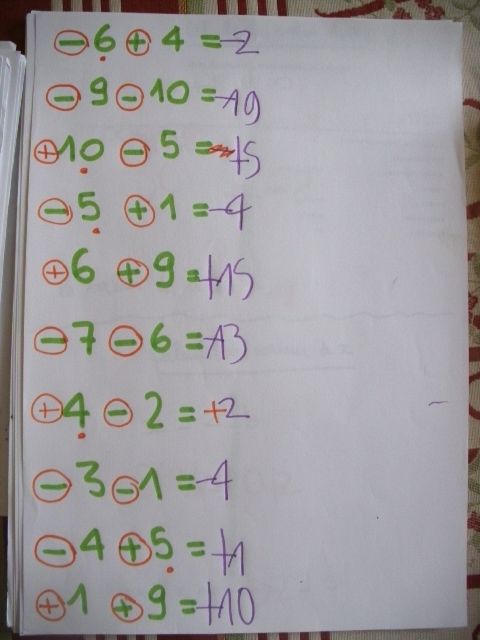 -6 + 4 = -2
-9 - 10 = -19
+10 - 5 = +5
-5 + 1 = -4
+6 + 9 = +15
-7 - 6 = -13
+4 - 2 = +2
-3 - 1 = -4
-4 + 5 = +1
+1 + 9 = +10